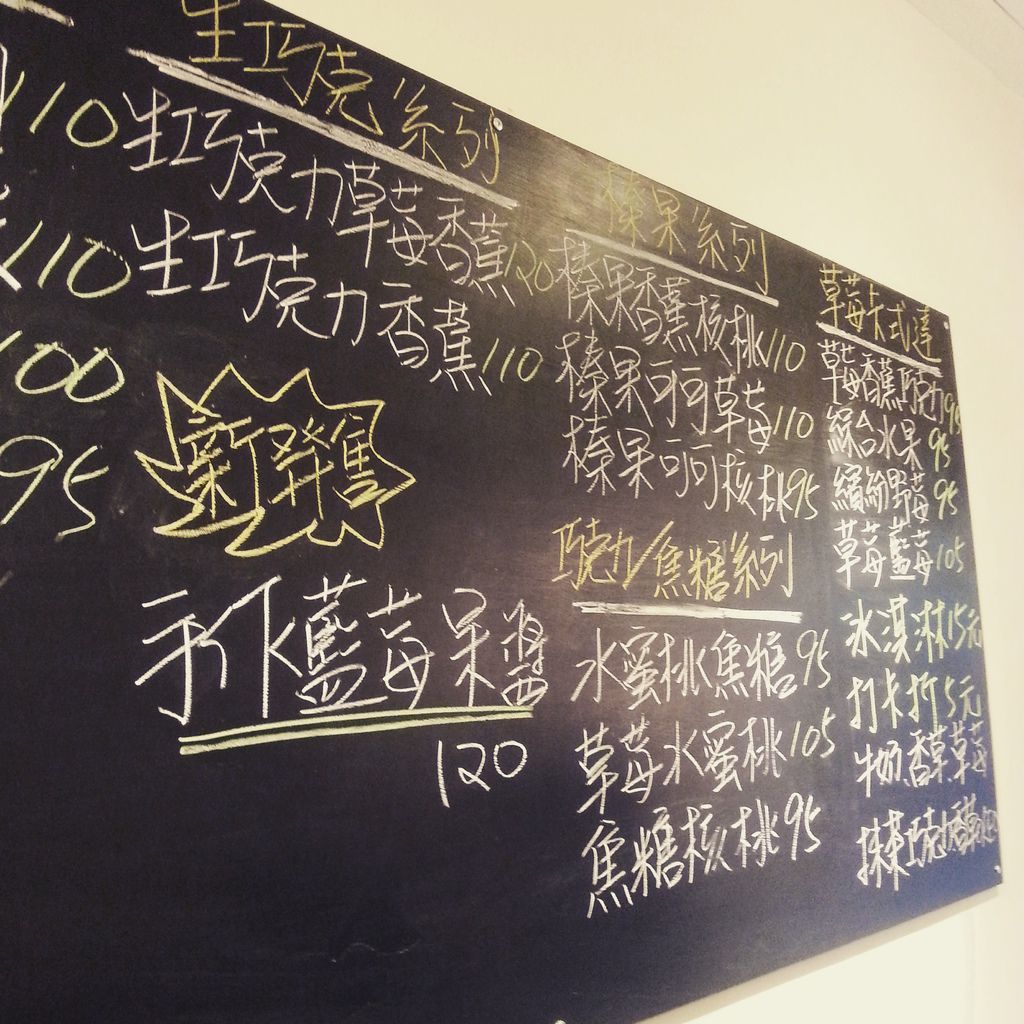 110
110
100
95
生巧克系列
生巧克力草莓香蕉120
生巧克力香蕉110
新發售
手作藍莓果醬
120
榛果系列
榛果香蕉核桃110
榛果可可草莓110
榛果可可核桃95
巧克力/焦糖系列
水蜜桃焦糖95
草莓水蜜桃105
焦糖核桃95
草莓卡式達
草莓香蕉巧力95
綜合水果95
繽紛野莓95
草莓藍莓105
冰淇淋15元
打卡折5元
牛奶香草草莓
抹茶巧克